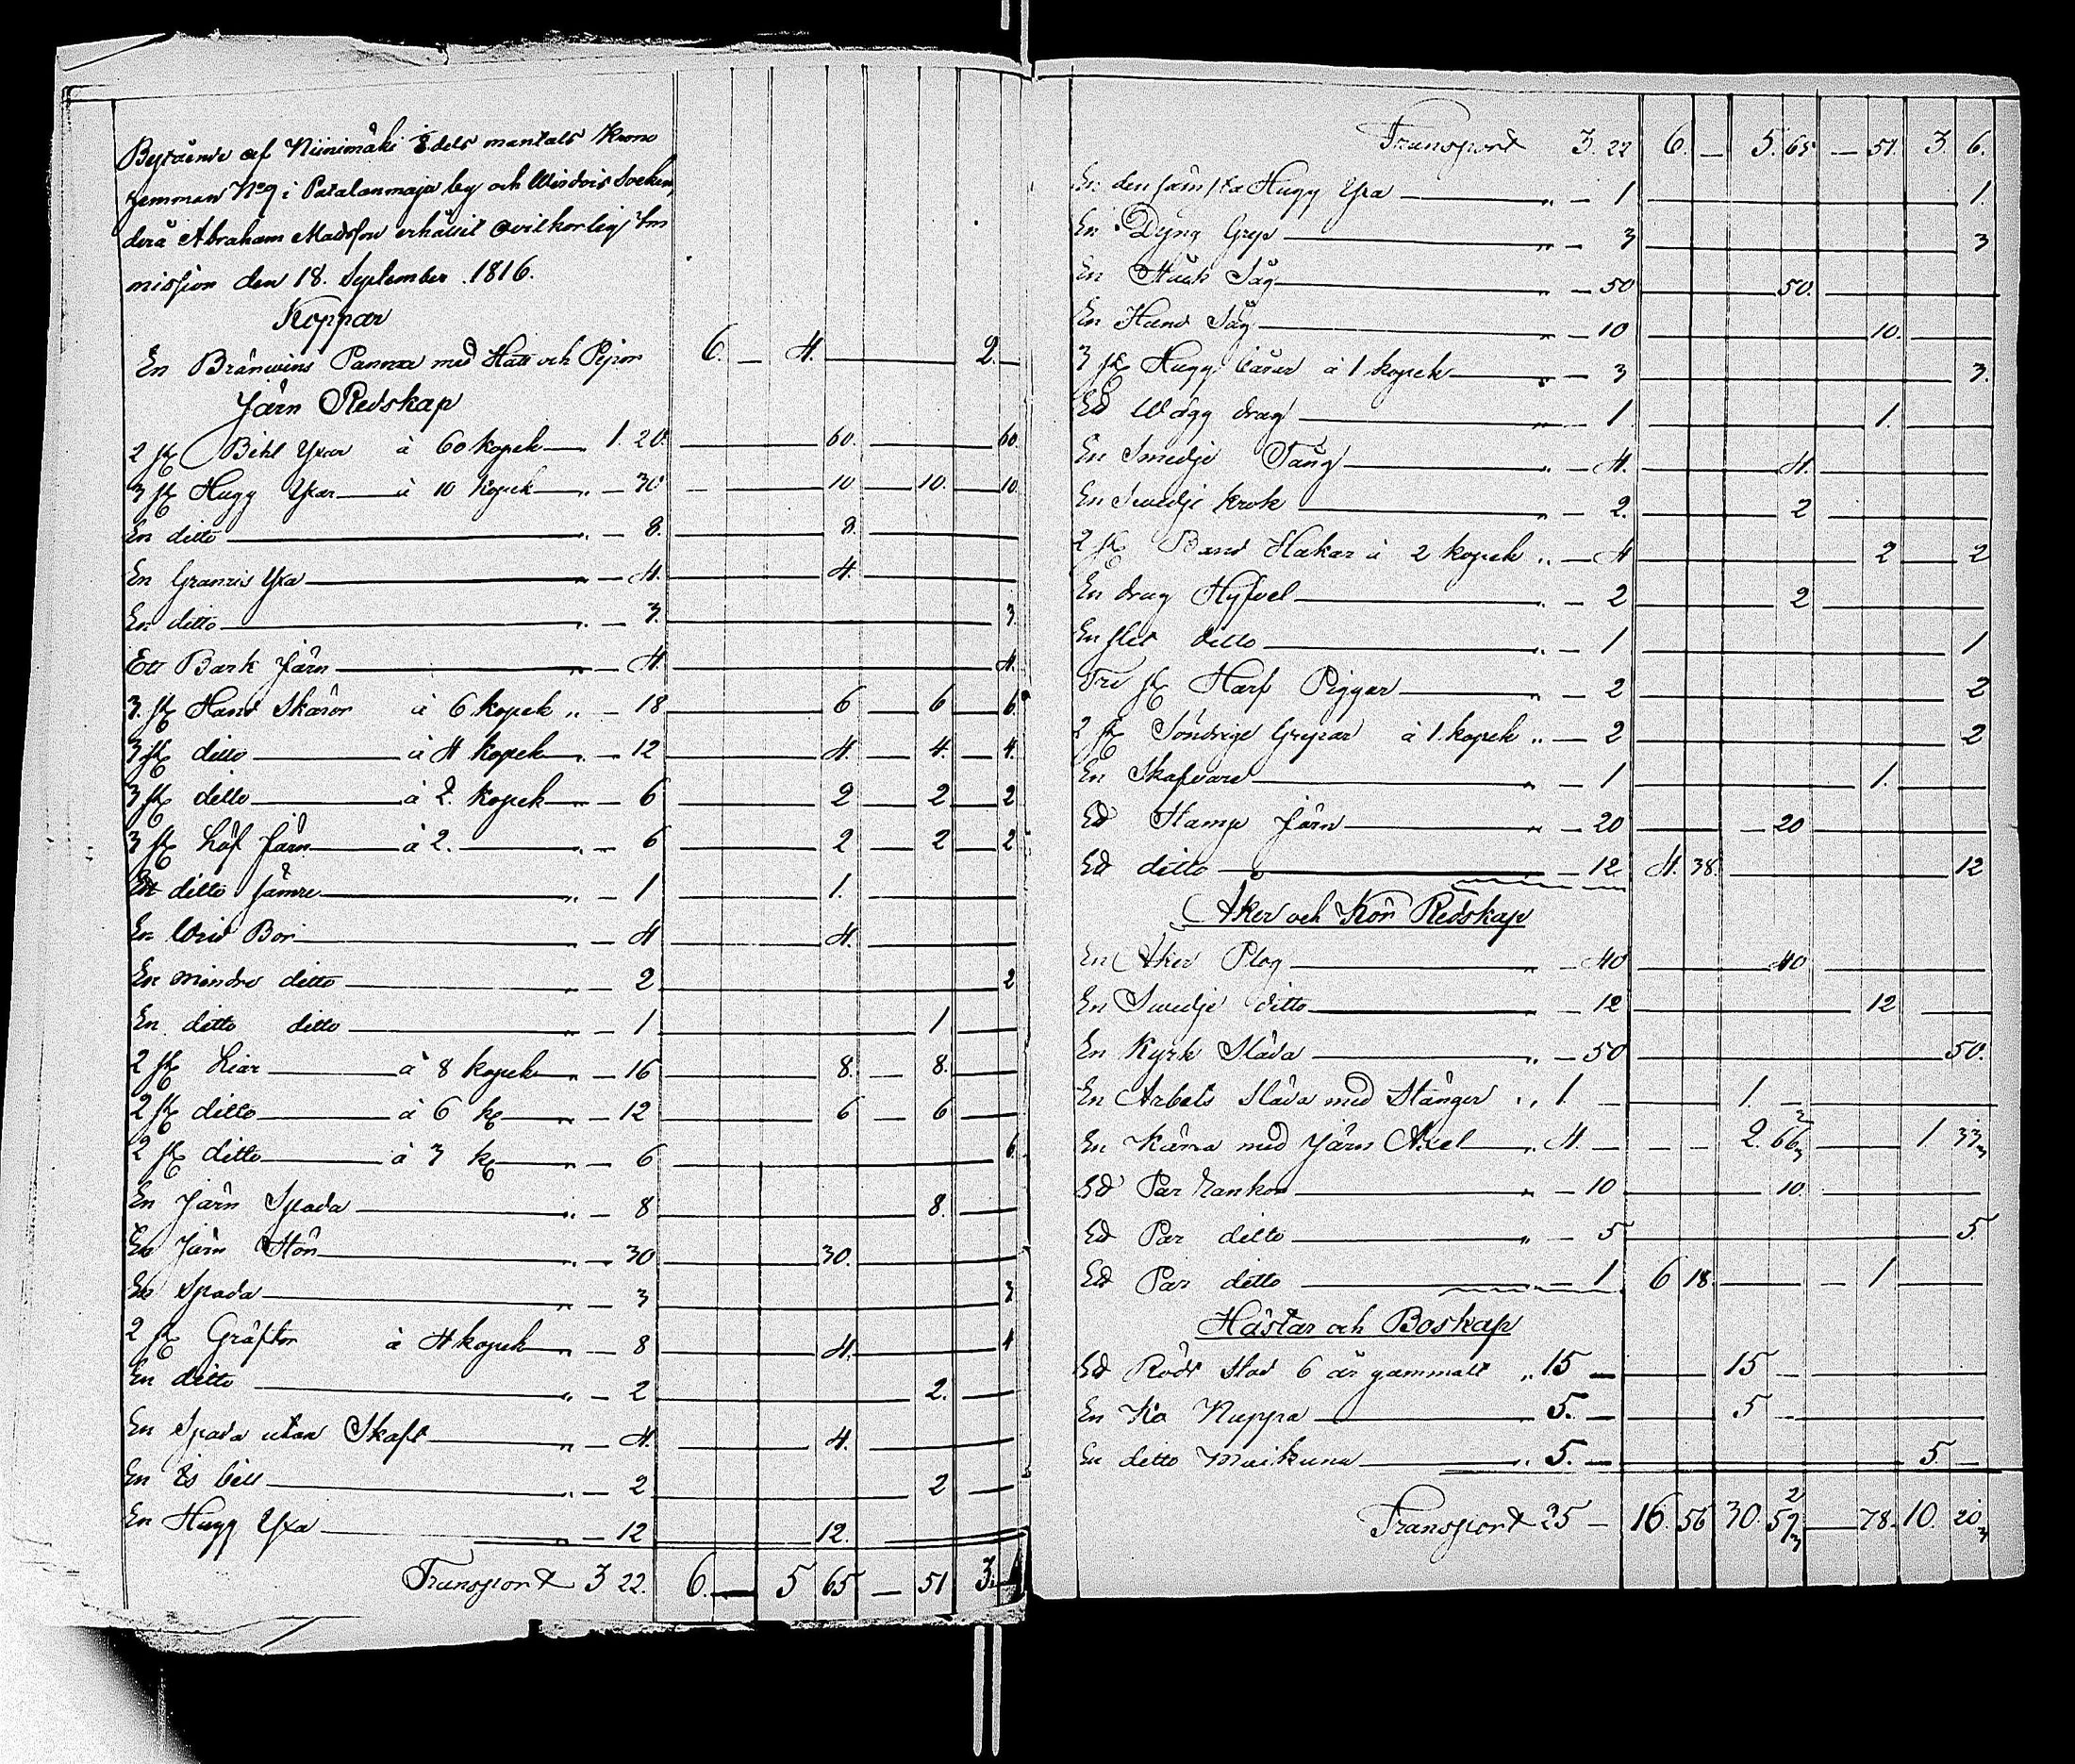 Bestående af Niinimäki 1/8 dels mantals Krono
hemman No 9 i Patalanmaja by och Wirdois Socken,
derå Abraham Madsson erhållit ovilkorligt Im
mission den 18. September. 1816.
Koppar
En Bränwins Panna med Hatt och Pipor 6. — 4. 2. —
Järn Redskap
2 st Bihl Yxor à 60 kopek 1. 20. 60. 60
3 st Hugg Yxor à 10 kopek „ — 30 10 10. 10.
En ditto „ — 8. 8.
En Granris Yxa „ — 4. 4.
En ditto „ — 3. 3.
Ett Bark Järn „ — 4 4.
3. st Hand Skäror à 6 kopek „ — 18 6 6 6.
3 st ditto à 4 kopek „ — 12 4. 4. 4.
3 st ditto à 2. kopek „ — 6 2 2 2
3 st Löf Järn à 2. „ — 6 2 2 2
Ett ditto sämre „ — 1 1.
En Wrid Bor „ — 4 4.
En mindre ditto „ — 2 2
En ditto ditto „ — 1 1
2 st Liar à 8 kopek „ — 16 8. 8.
2 st ditto à 6 k „ — 12 6 6
2 st ditto à 3 k „ — 6 6
En Järn Spada „ — 8 8.
En Järn Stör „ — 30 30.
En Spada „ — 3 3
2 st Gräftor à 4 kopek „ — 8 4. 4
En ditto „ — 2 2.
En Spada utan Skaft „ — 4. 4.
En Is bill „ — 2 2
En Hugg Yxa — 12 12.
Transport 3 22. 6. — 5 65 — 51 3. 6
Transport 3. 22 6. — 5. 65 — 51. 3. 6.
En den sämsta Hugg Yxa „ — 1 1.
En Dyng Grep „ — 3 3
En Stock Såg „ — 50 50.
En Hand Såg „ — 10 10.
3 st Hugg à 1 kopek „ — 3 3.
Ett Wägg drag „ — 1 1.
En Smedje Tång „ — 4. 4.
En Swedje krok „ — 2. 2
2 st Band Hakar à 2 kopek „ — 4 2 2
En drag Hyfvel „ — 2 2
En slet ditto „ — 1 1
Tre st Harf Piggar „ — 2 2
2 st Söndrige Grepar à 1. kopek „ — 2 2
En Skafvare „ — 1 1.
Ett Stamp Järn „ — 20 — 20
Ett ditto „ — 12 4. 38. 12
Åker och Kör Redskap
En Åker Plog „ — 40 40
En Swedje ditto „ — 12 12
En Kyrk Släda „ — 50 50.
En Arbets Släda med Stänger „ 1. — 1. —
En Kärra med Järn Axel „ 4. — 2. 66 2/3 1 33 1/3
Ett Par Rankor „ — 10 10
Ett Par ditto „ — 5 5.
Ett Par ditto „ — 1 6 18. 1
Hästar och Boskap
Ett Rödt Stod 6 år gammalt „ 15 — 15 —
En Ko Nuppa 5. — 5 —
En ditto Maikuna „ 5. — 5. —
Transport 25 — 16. 56 30. 59 2/3 — 78. 10. 20 1/3